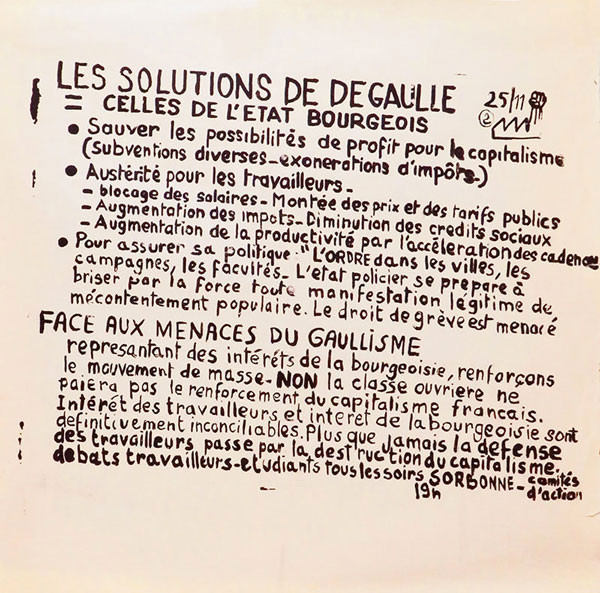 LES SOLUTIONS DE DEGAULLE
= CELLES DE L'ETAT BOURGEOIS
25/11
2
• Sauver les possibilités de profit pour le capitalisme
(subventions diverses - exonerations d'impôts.)
• Austérité pour les travailleurs -
- blocage des salaires - Montée des prix et des tarifs publics
- Augmentation des impots - Diminution des credits sociaux
- Augmentation de la productivité par l'accélération des cadences
• Pour assurer sa politique : "L'ORDRE dans les villes, les
campagnes, les facultés - L'etat policier se prepare à
briser par la force toute manifestation légitime de,
mécontentement populaire. Le droit de grève est menacé
FACE AUX MENACES DU GAULLISME
represantant des intérêts de la bourgeoisie, renforçons
le mouvement de masse - NON la classe ouvriere ne
paiera pas le renforcement du capitalisme francais.
Intérêt des travailleurs et interet de la bourgeoisie sont
definitivement inconciliables. Plus que jamais la défense
des travailleurs passe par la destruction du capitalisme.
debats travailleurs-etudiants tous les soirs SORBONNE - comités
19h d'action